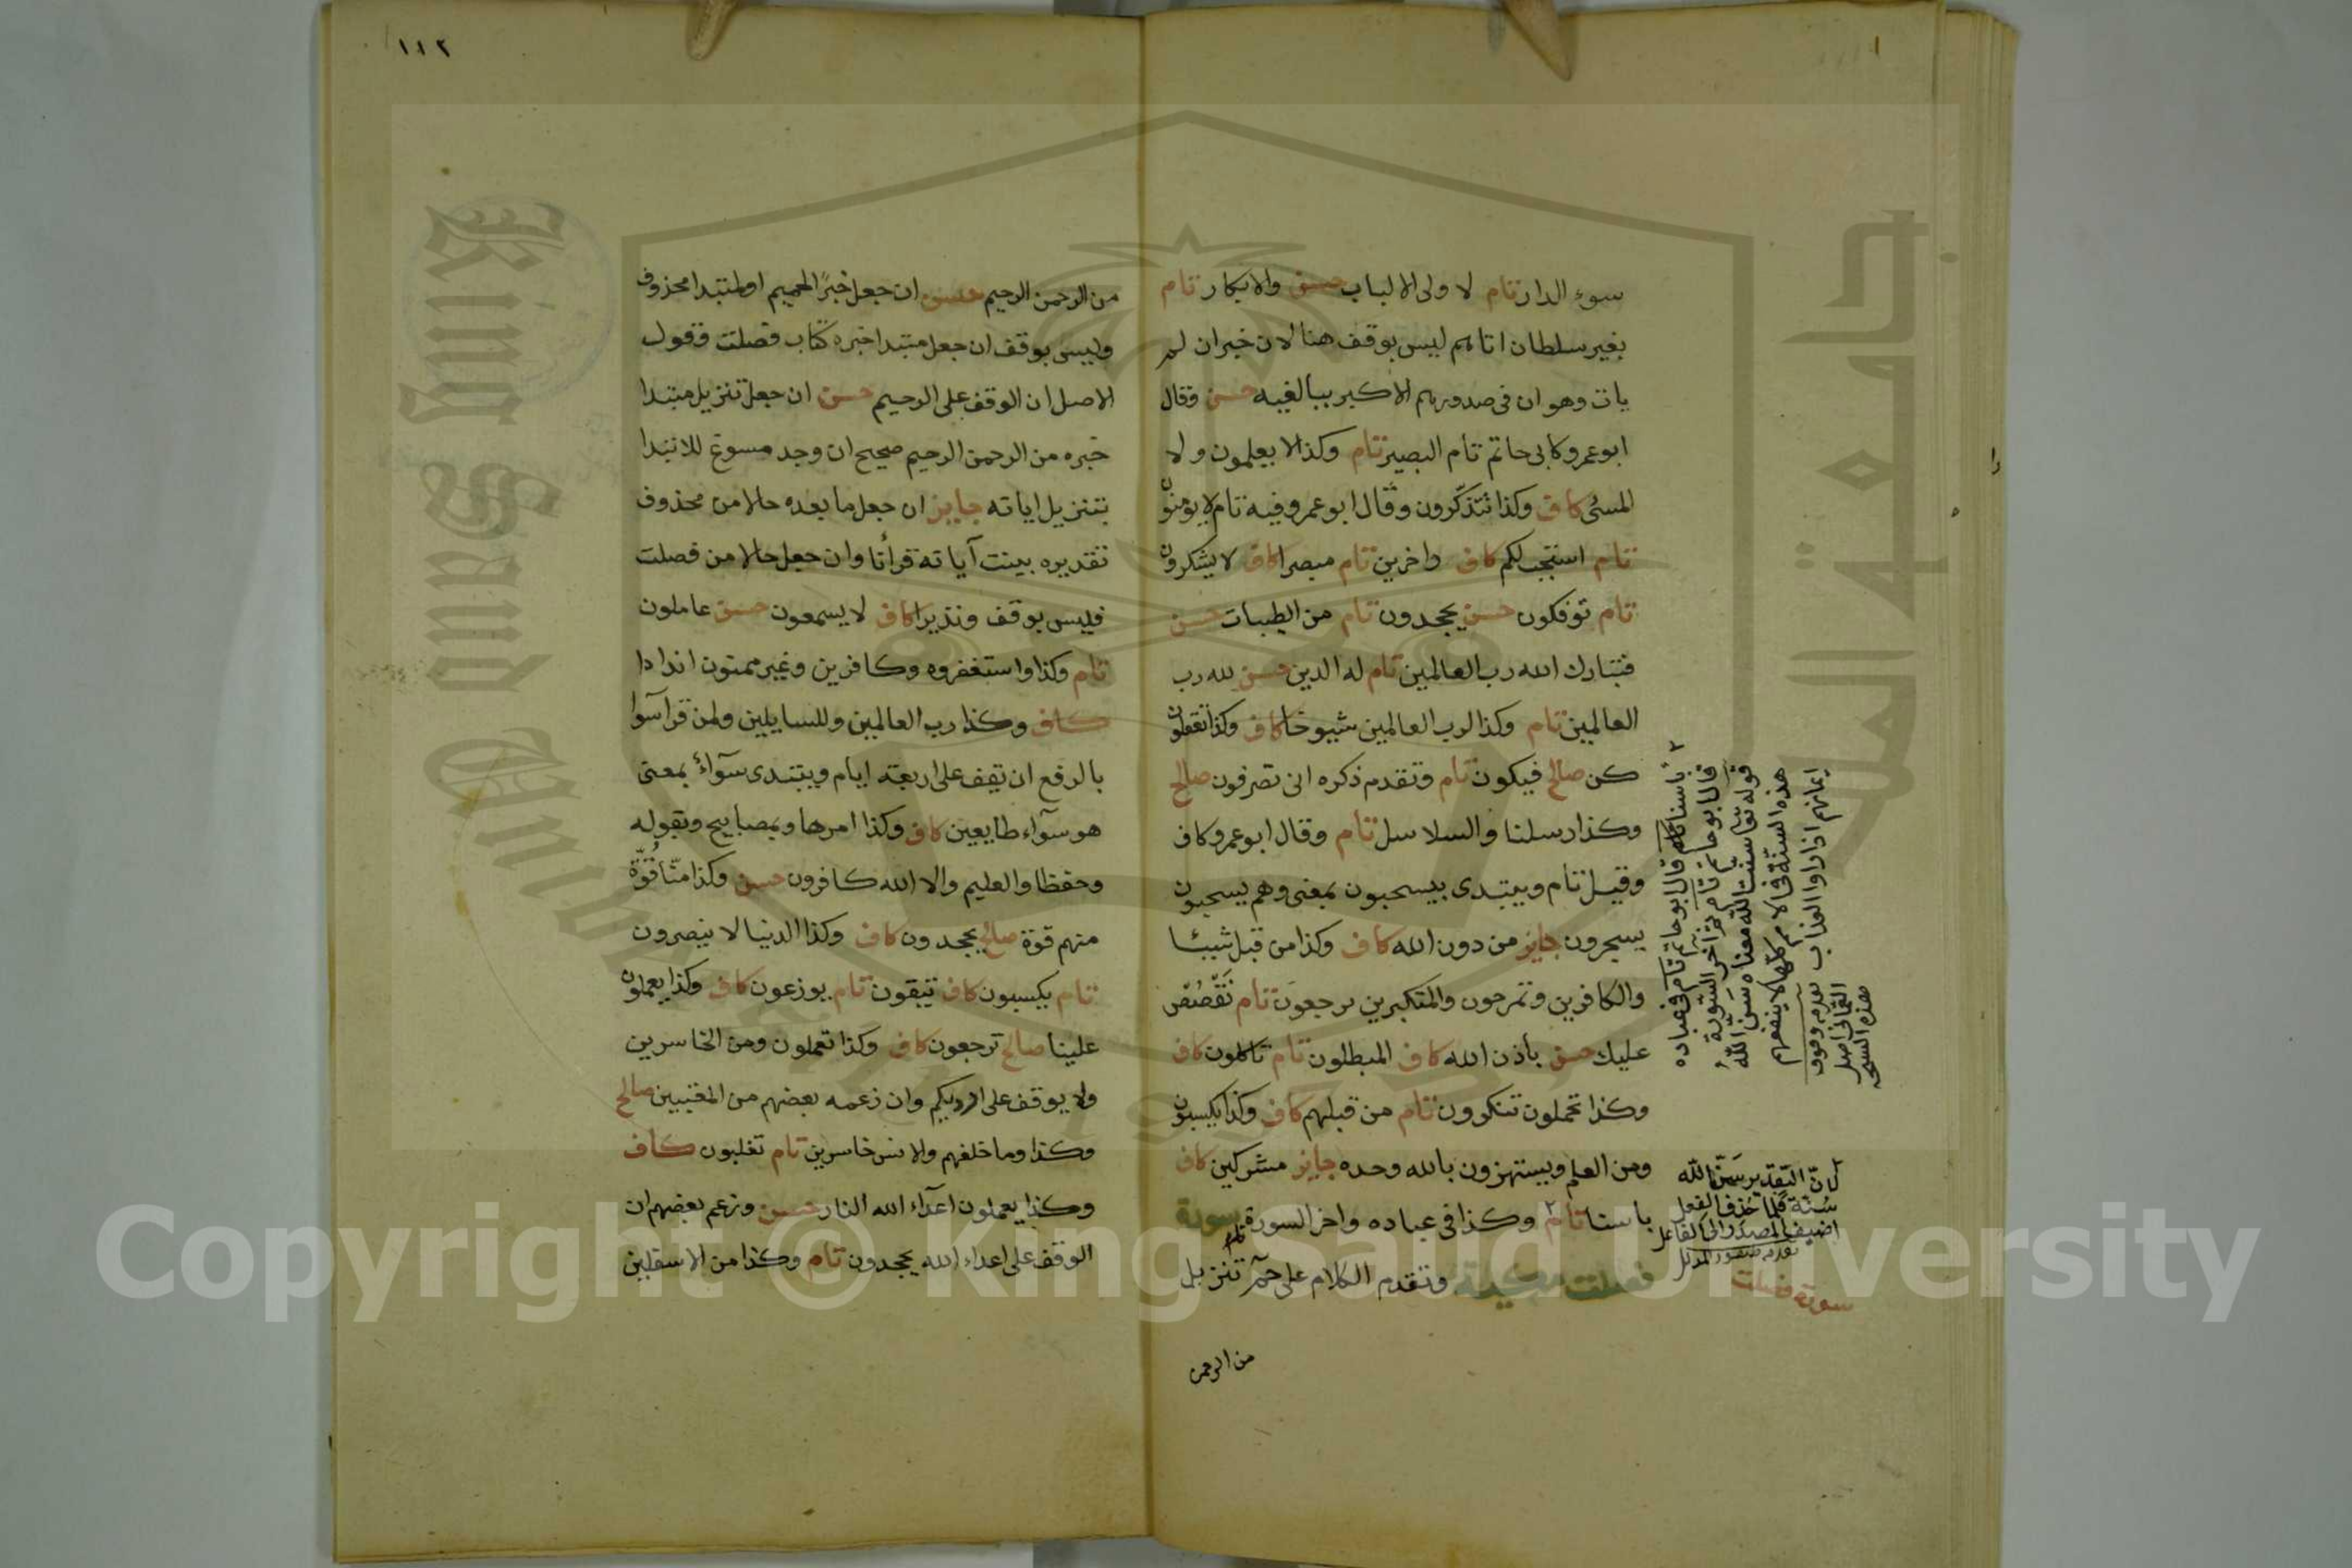 سوء الدار تام لا ولى الالباب حسن والابكار تام
بغير سلطان اتاهم ليس بوقف هنا لان خبران لم
يات وهو ان فى صدورهم الا كبر ببالغيه حسن وقال
ابو عمرو كابى حاتم تام البصير تام وكذا لا يعلمون ولا
المسئ كاف وكذا تتذكرون وقال ابو عمرو فيه تام لا يؤمنون
تام استجب لكم كاف داخرين تام مبصرا كاف لا يشكرون
تام توفكون حسن يجحدون تام من الطيبات حسن
فتبارك الله رب العالمين تام له الدين حسن لله رب
العالمين تام وكذا لرب العالمين شيوخا كاف وكذا تعقلون
كن صالح فيكون تام وتقدم ذكره انى تصرفون صالح
وكذا رسلنا والسلاسل تام وقال ابو عمرو كاف
وقيل تام ويبتدى بيسحبون بمعنى وهم يسحبون
يسجرون جايز من دون الله كاف وكذا من قبل شيئا
والكافرين وتمرحون والمتكبرين يرجعون تام نقصص
عليك حسن بأذن الله كاف المبطلون تام تاكلون كاف
وكذا تحملون تنكرون تام من قبلهم كاف وكذا يكسبون
ومن العلم ويستهزون بالله وحده جايز مشركين كاف
باسنا تام وكذا فى عباده واخر السورة سورة
فصلت مكية وتقدم الكلام على حم تنزيل
من الرحمن
باسنا قال ابو حاتم تام فى عباده
قال ابو حاتم تام آخر السورة
قوله سنت الله معناه سن الله
هذه السنة فى الامم كلها لا ينفعهم
ايمانهم اذا راوا العذاب
هذه النسخه
لان التقدير سن الله
سنة فلما حذف الفعل
اضيف المصدر الى الفاعل
سورة فصلت
١١٢
من الرحمن الرحيم حسن ان جعل خبرا لحميم او لمبتدا محذوف
وليس بوقف ان جعل مبتدا خبره كتاب فصلت فقول
الاصل ان الوقف على الرحيم حسن ان جعل تنزيل مبتدا
خبره من الرحمن الرحيم صحيح ان وجد مسوغ للابتدا
بتنزيل اياته جايز ان جعل ما بعده حالا من محذوف
تقديره بينت آياته قرأنا وان جعل حالا من فصلت
فليس بوقف ونذيرا كاف لا يسمعون حسن عاملون
تام وكذا واستغفروه وكافرين وغير ممنون اندادا
كاف وكذا رب العالمين وللسايلين ولمن قرا سوا
بالرفع ان تقف على اربعة ايام ويبتدى سوآء بمعنى
هو سوآء طايعين كاف وكذا امرها وبمصابيح وبقوله
وحفظا والعليم والا الله كافرون حسن وكذا منا قوة
منهم قوة صالح يجحدون كاف وكذا الدنيا لا ينصرون
تام يكسبون كاف يتقون تام يوزعون كاف وكذا يعملون
علينا صالح ترجعون كاف وكذا تعملون ومن الخاسرين
ولا يوقف على ارديكم وان زعمه بعضهم من المعتبين صالح
وكذا وما خلفهم والانس خاسرين تام تغلبون كاف
وكذا يعملون اعدآء الله النار حسن وزعم بعضهم ان
الوقف على اعداء الله يجحدون تام وكذا من الاسفلين
جامعة الملك
King Saud University
Copyright © King Saud University